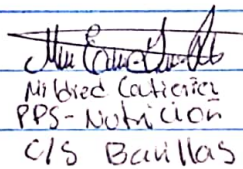 Mildred Gutierrez
PPS-Nutrición
C/S Barillas